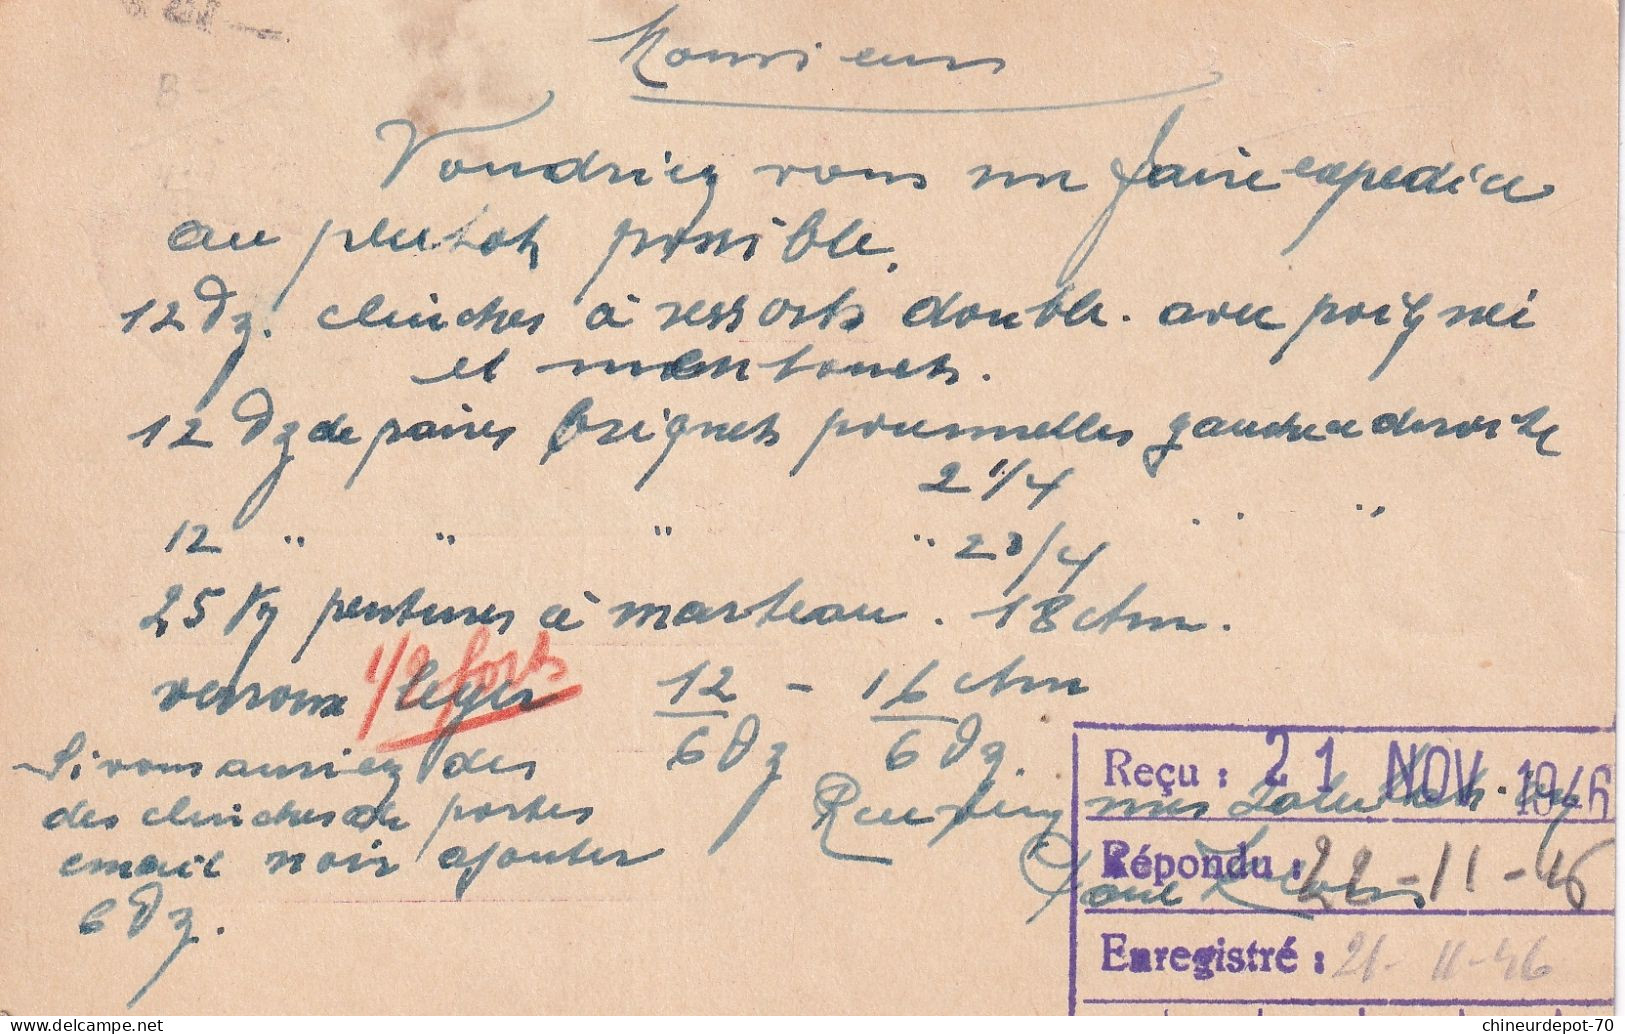 Monsieur
Voudriez vous me faire expedier
au plutot possible.
12 Dz. clinches à ressorts double. avec poignei
et mentonets.
12 Dz de paires briquets poumelles gauche et droite
2 1/4
12 " " " " 2 3/4 " " "
25 Kg pentures à marteau. 18 ctm.
verroux leger 12 - 16 ctm
1/2 forts
6 Dz 6 Dz.
Si vous auriez des
des clinches de portes
email noir ajouter
6 Dz.
mes
Paul
Reçu : 21 NOV 1946
Répondu : 22-11-46
Enregistré : 21-11-46
chineurdepot-70